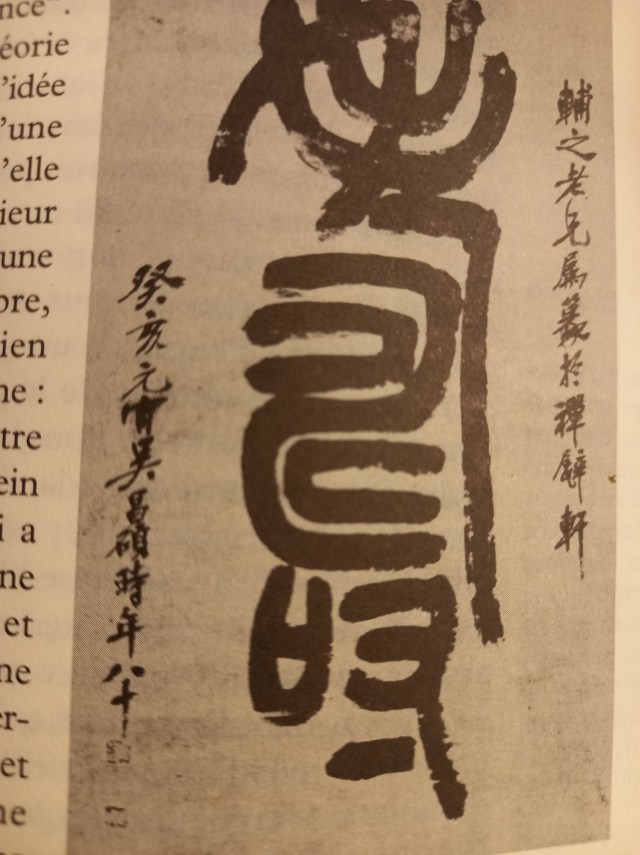 nce".
éorie
'idée
'une
'elle
ieur
une
bre,
ien
ne :
tre
ein
i a
ne
et
ne
er-
et
ne
輔之老兄属篆於禪甓軒
壽
癸亥元宵吳昌碩時年八十